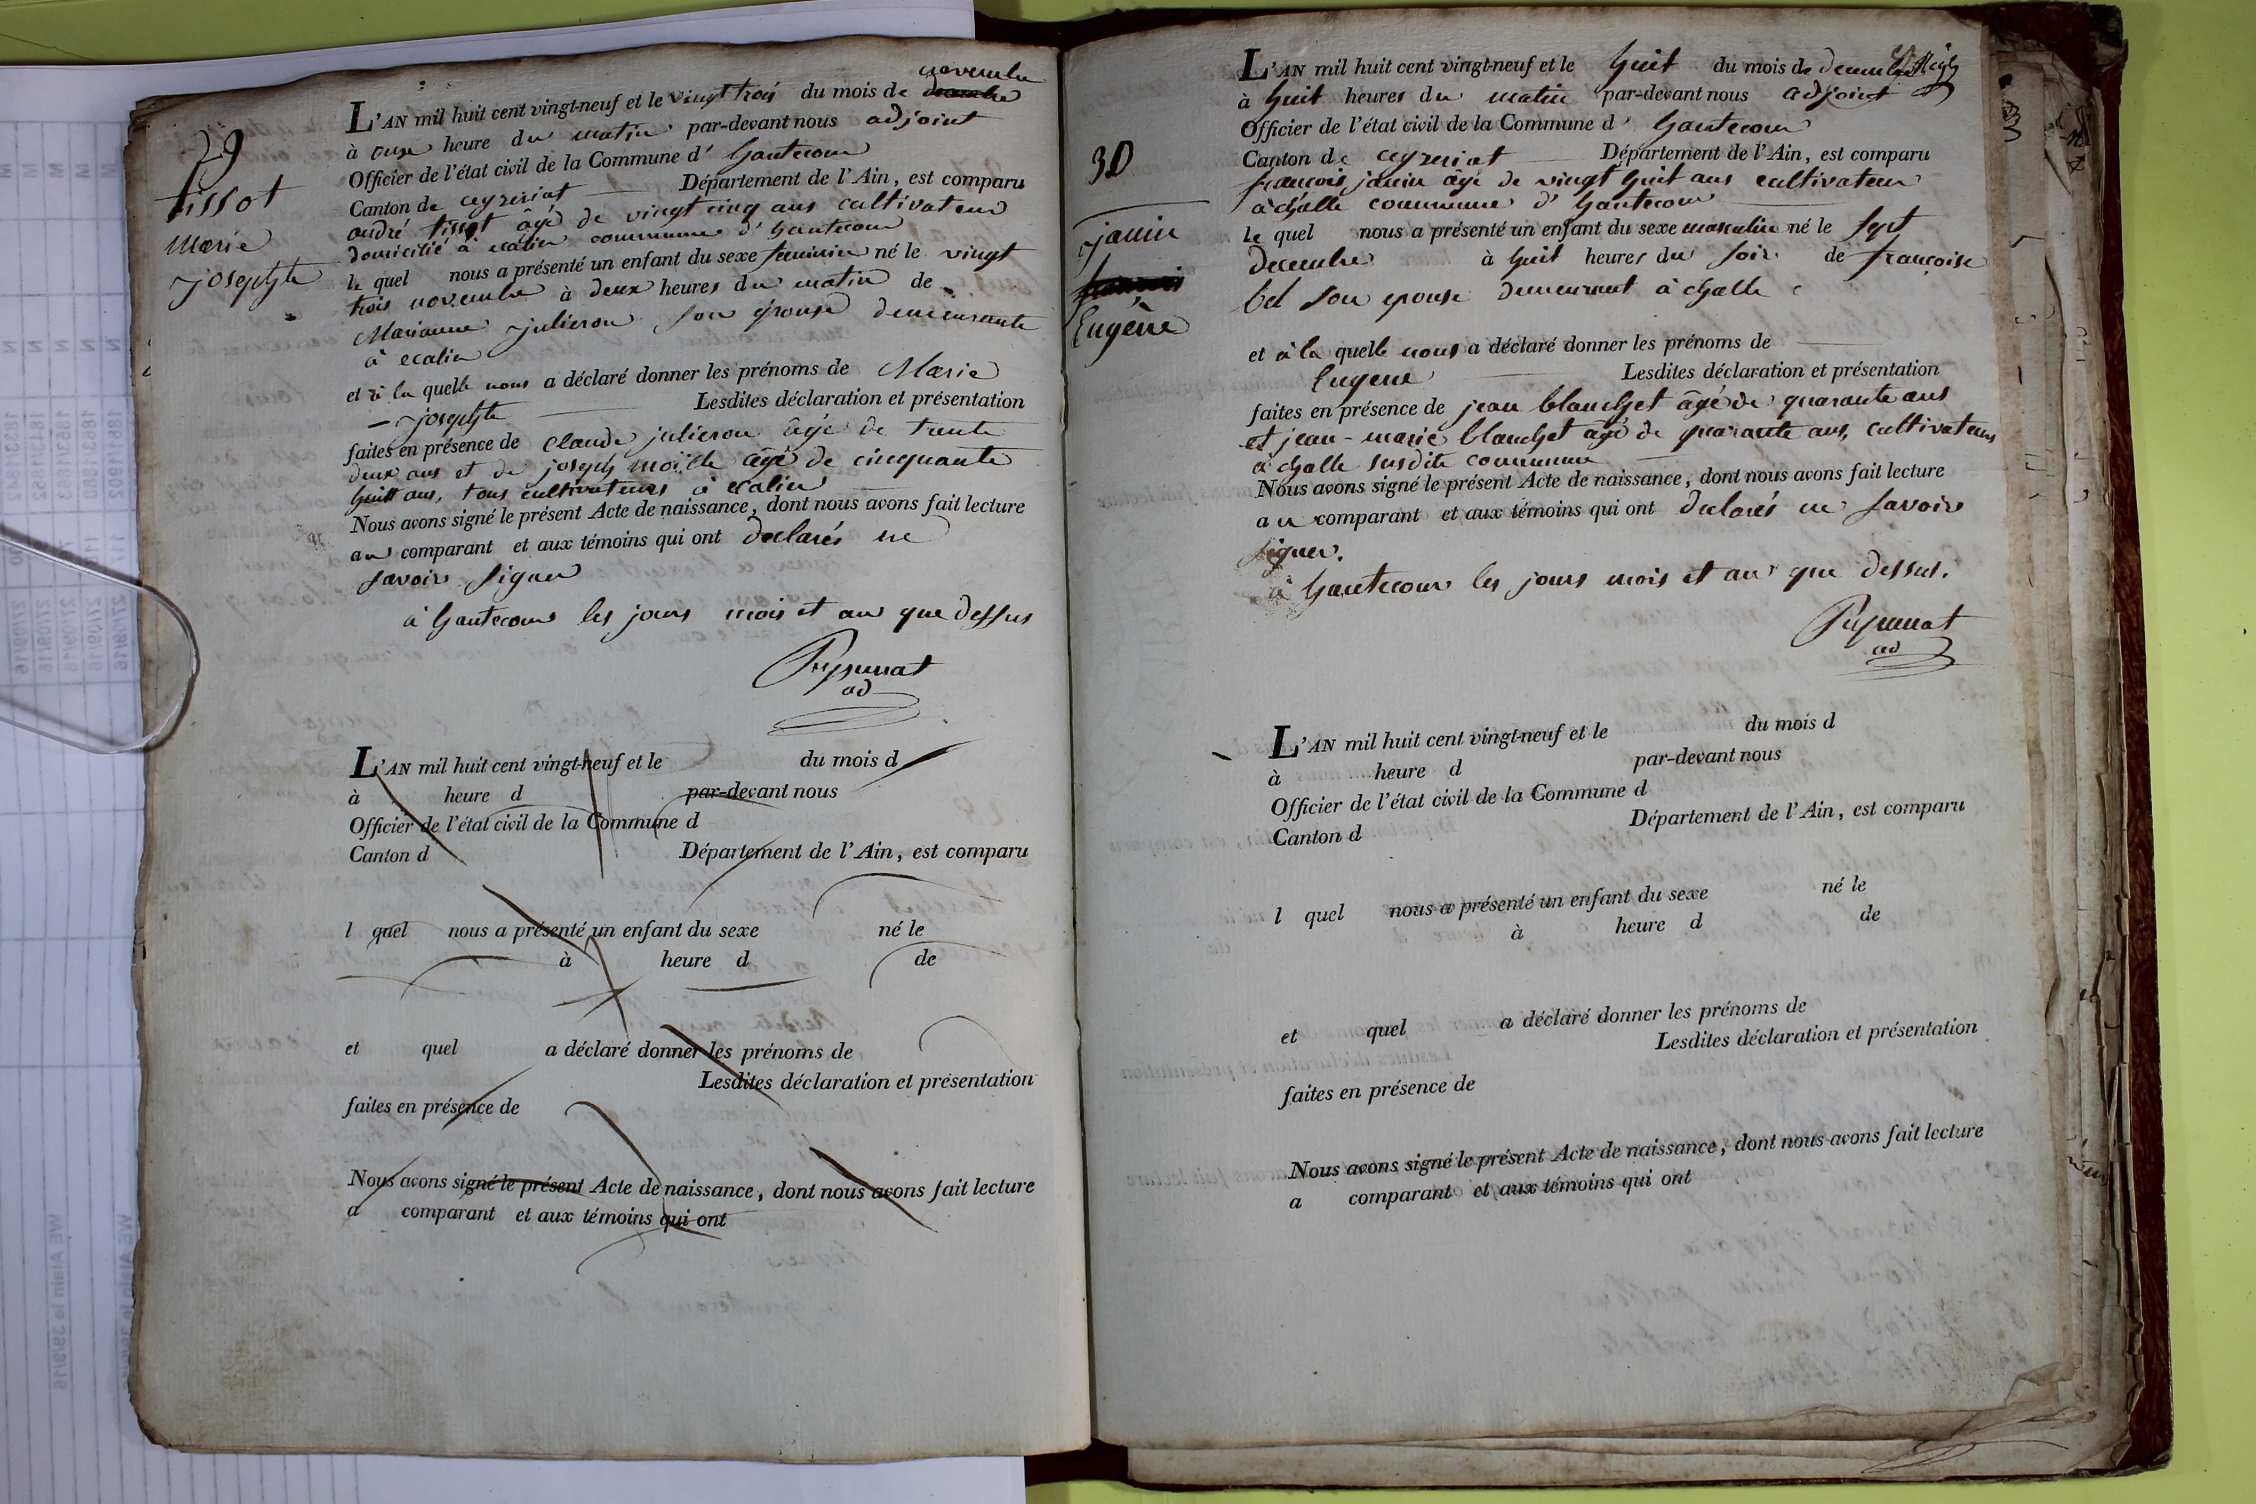 29
tissot
Marie
josephte
novembre
L'AN mil huit cent vingt-neuf et le vingt trois du mois de decembre
à onze heure du matin par-devant nous adjoint
Officier de l'état civil de la Commune d' hautecour
Canton de ceyzeriat Département de l'Ain, est comparu
andré tissot âgé de vingt cinq ans cultivateur
domicilié à commune d' hautecour
le quel nous a présenté un enfant du sexe feminin né le vingt
trois novembre à deux heures du matin de
Marianne julieron son épouse demeurante
à
et à la quelle nous a déclaré donner les prénoms de Marie
josephte Lesdites déclaration et présentation
faites en présence de Claude julieron âgé de trente
deux ans et de joseph moëlle âgé de cinquante
huit ans, tous cultivateurs à
Nous avons signé le présent Acte de naissance, dont nous avons fait lecture
au comparant et aux témoins qui ont declarés ne
savoir signer
à hautecour les jours mois et an que dessus
ad
L'AN mil huit cent vingt-neuf et le du mois d
à heure d par-devant nous
Officier de l'état civil de la Commune d
Canton d Département de l'Ain, est comparu
l quel nous a présenté un enfant du sexe né le
à heure d de
et quel a déclaré donner les prénoms de
Lesdites déclaration et présentation
faites en présence de
Nous avons signé le présent Acte de naissance, dont nous avons fait lecture
a comparant et aux témoins qui ont
30
janin
francois
Eugène
L'AN mil huit cent vingt-neuf et le huit du mois de decembre
à huit heures du matin par-devant nous adjoint
Officier de l'état civil de la Commune d' hautecour
Canton de ceyzeriat Département de l'Ain, est comparu
francois janin âgé de vingt huit ans cultivateur
à challe commune d' hautecour
le quel nous a présenté un enfant du sexe masculin né le sept
decembre à huit heures du soir de françoise
bel son epouse demeurant à challe
et à la quelle nous a déclaré donner les prénoms de
Eugene Lesdites déclaration et présentation
faites en présence de jean blanchet âgé de quarante ans
et jean-marie blanchet agé de quarante ans, cultivateurs
à challe susdite commune
Nous avons signé le présent Acte de naissance, dont nous avons fait lecture
au comparant et aux témoins qui ont declarés ne savoir
signer.
à hautecour les jours mois et an que dessus.
ad
L'AN mil huit cent vingt-neuf et le du mois d
à heure d par-devant nous
Officier de l'état civil de la Commune d
Canton d Département de l'Ain, est comparu
l quel nous a présenté un enfant du sexe né le
à heure d de
et quel a déclaré donner les prénoms de
Lesdites déclaration et présentation
faites en présence de
Nous avons signé le présent Acte de naissance, dont nous avons fait lecture
a comparant et aux témoins qui ont